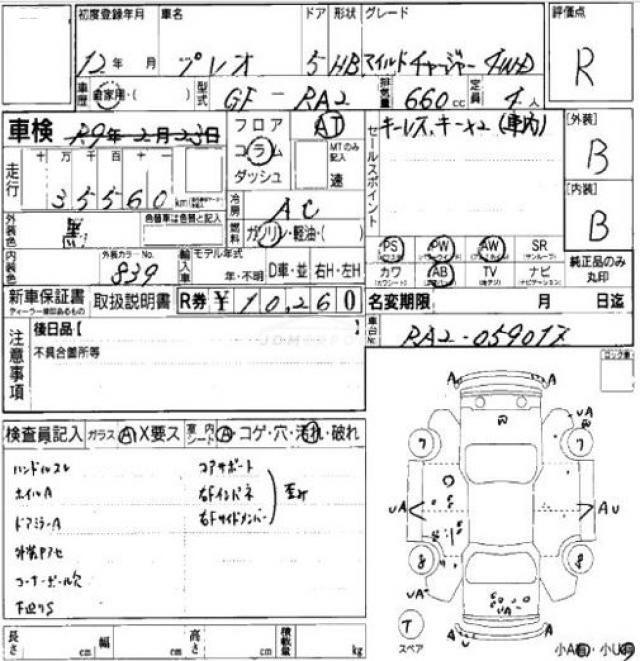 初度登録年月 車名 ドア 形状 グレード 評価点
12年 月 プレオ 5 HB マイルドチャージャー 4WD R
車歴 自家用・( ) 型式 GF-RA2 排気量 660cc 定員 4人
車検 R9年2月23日 フロア AT セールスポイント キーレス、キー×2(車内) [外装]
コラム MTのみ記入 B
走行 十 万 千 百 十 一 ダッシュ 速
35560km [内装]
冷房 AC B
外装色 黒 色替車は色替と記入 燃料 ガソリン・軽油・( ) PS PW AW SR 純正品のみ丸印
内装色 外装カラーNo. 839 輸入車 モデル年式 年・不明 D車・並 右H・左H カワ AB TV ナビ
新車保証書 取扱説明書 R券 ¥10,260 名変期限 月 日迄
ディーラー様印あるもの
注意事項 後日品【 車台No. RA2-059017
不具合箇所等
検査員記入 ガラス A X要ス 室内シート A・コゲ・穴・汚れ・破れ
ハンドルスレ コアサポート
ホイルA 右Fインパネ
ドアミラーA 右Fサイドメンバー
外装クアセ
コーナーポール穴
下廻りS
A A
W UA
7 7
UA AU
8 8
UA UA
T
スペア A U
長さ cm 幅 cm 高さ cm 積載量 kg 小A 小U